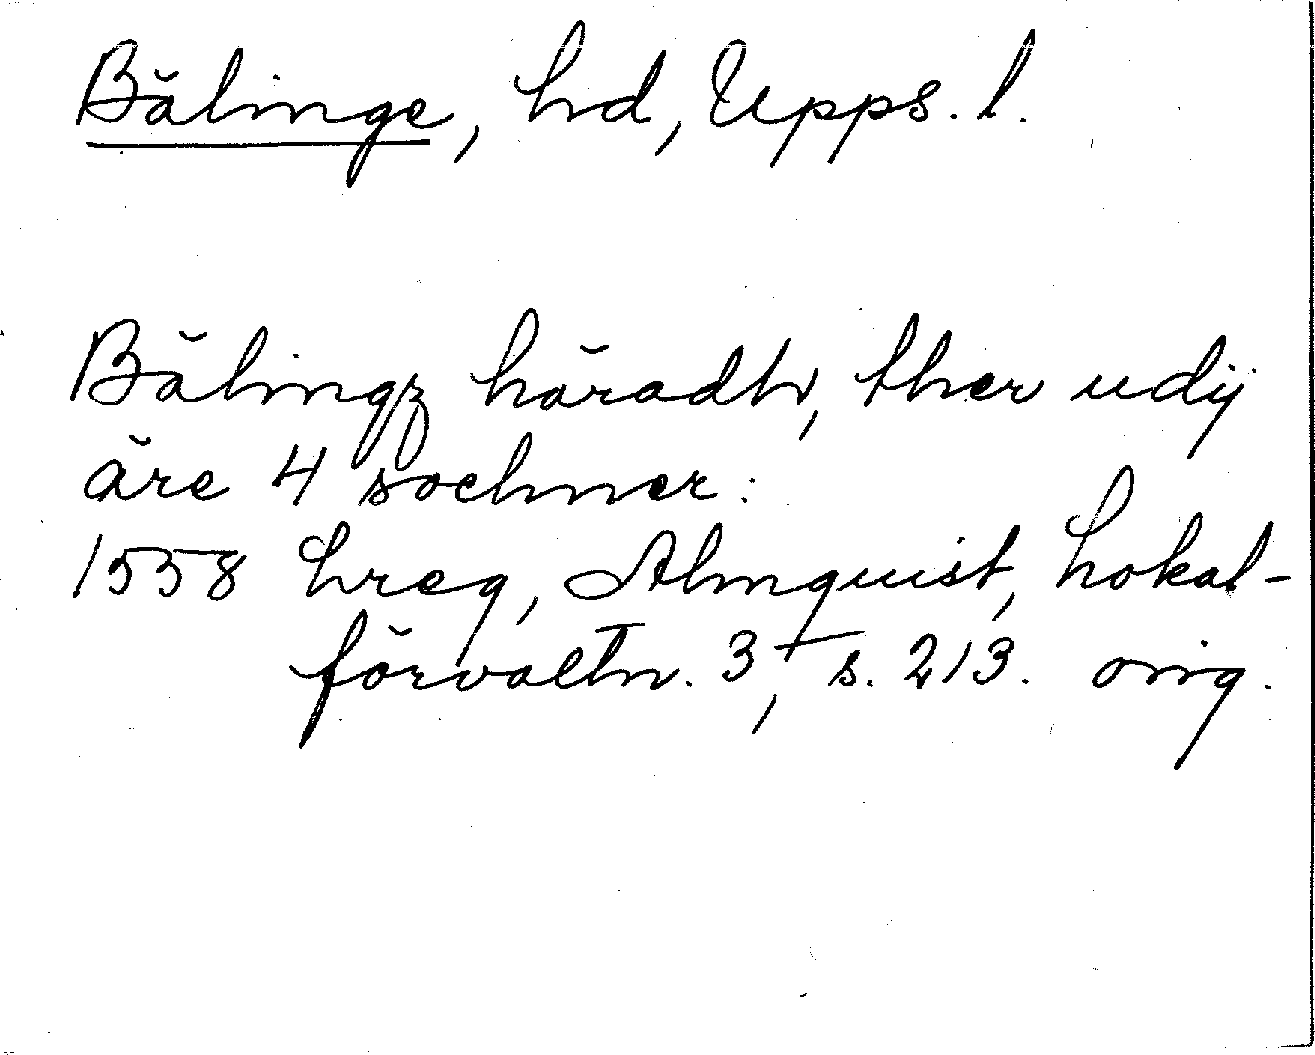 Bälinge, hd, Upps. l.
Bälingz häradh, ther udij
äre 4 sochner:
1558 hreg, Almquist, Lokal-
förvaltn. 3, s. 213. orig.